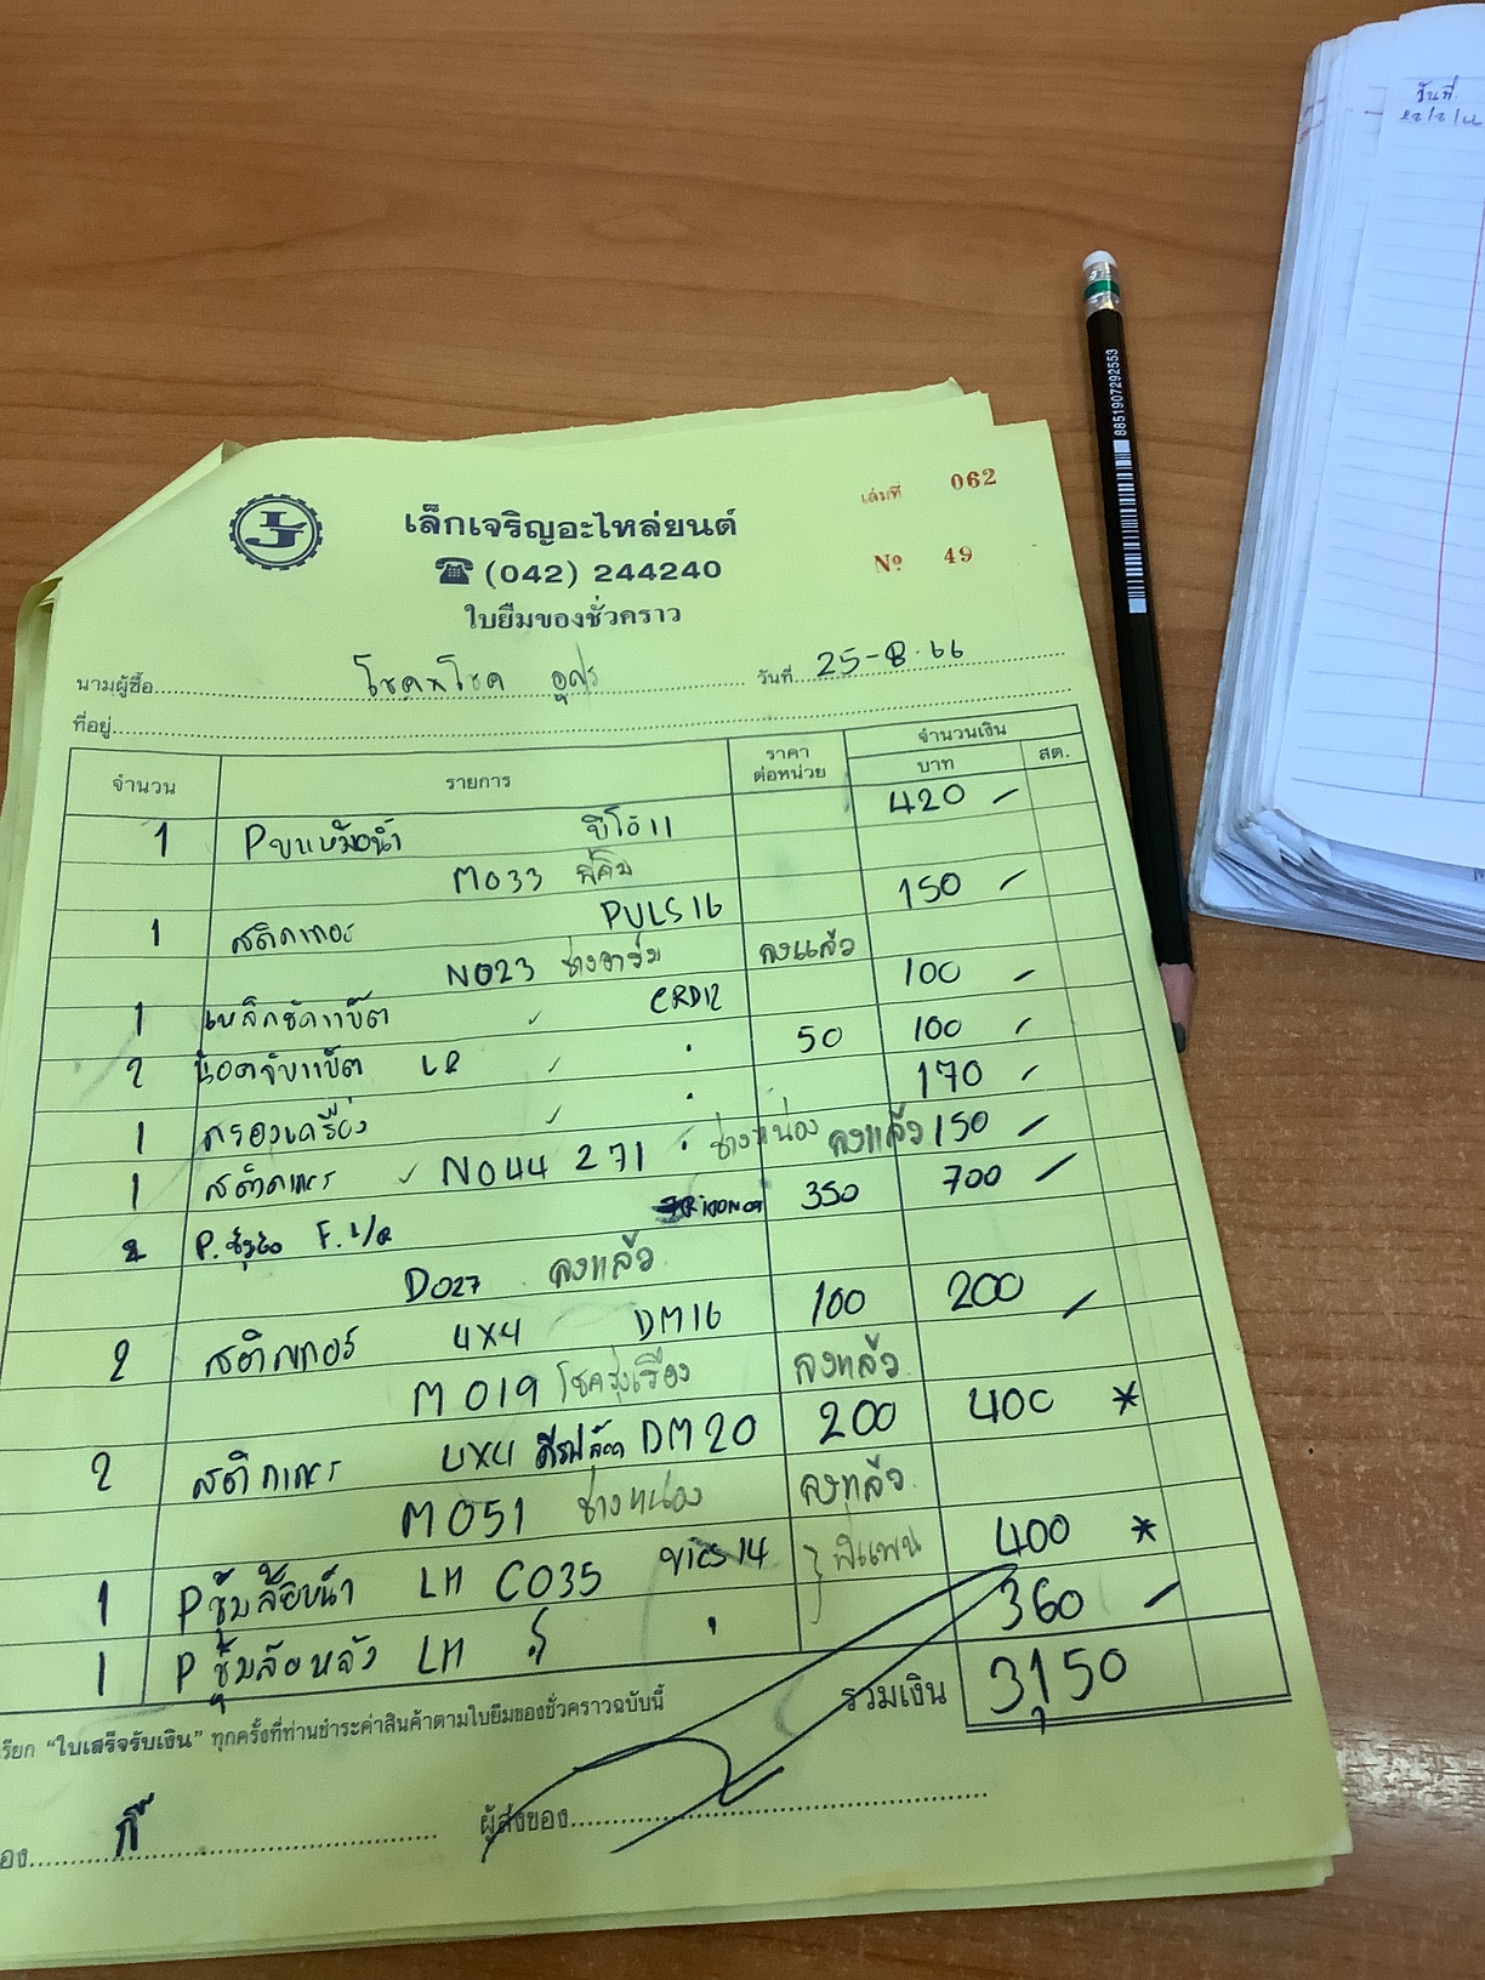 วันที่
8851907292553
เล่มที่ 062
เล็กเจริญอะไหล่ยนต์
(042) 244240
№ 49
ใบยืมของชั่วคราว
นามผู้ซื้อ โชคโชค อุดร วันที่ 25-8-66
ที่อยู่
จำนวน รายการ ราคาต่อหน่วย จำนวนเงิน
บาท สต.
1 Pขบหม้อน้ำ วีโก้11 420
M033 พี่คิม
1 สติกเกอร์ PULS16 150
N023 ช่างอาร์ม ลงแล้ว
1 เหล็กรัดแบ็ต CRD12 100
2 น็อตจับแบ็ต LR 50 100
1 กรองเครื่อง 170
1 สติกเกอร์ N044 271 ช่างหน่อง ลงแล้ว 150
2 P. F. L/R 350 700
D027 ลงแล้ว
2 สติกเกอร์ 4X4 DM16 100 200
M019 โชครุ่งเรือง ลงแล้ว
2 สติกเกอร์ 4X4 DM20 200 400 *
M051 ช่างหน่อง ลงแล้ว
1 Pซุ้มล้อหน้า LH C035 vios14 พี่แพน 400 *
1 Pซุ้มล้อหลัง LH 360
รวมเงิน 3,150
เรียก "ใบเสร็จรับเงิน" ทุกครั้งที่ท่านชำระค่าสินค้าตามใบยืมของชั่วคราวฉบับนี้
อง กี้ ผู้ส่งของ